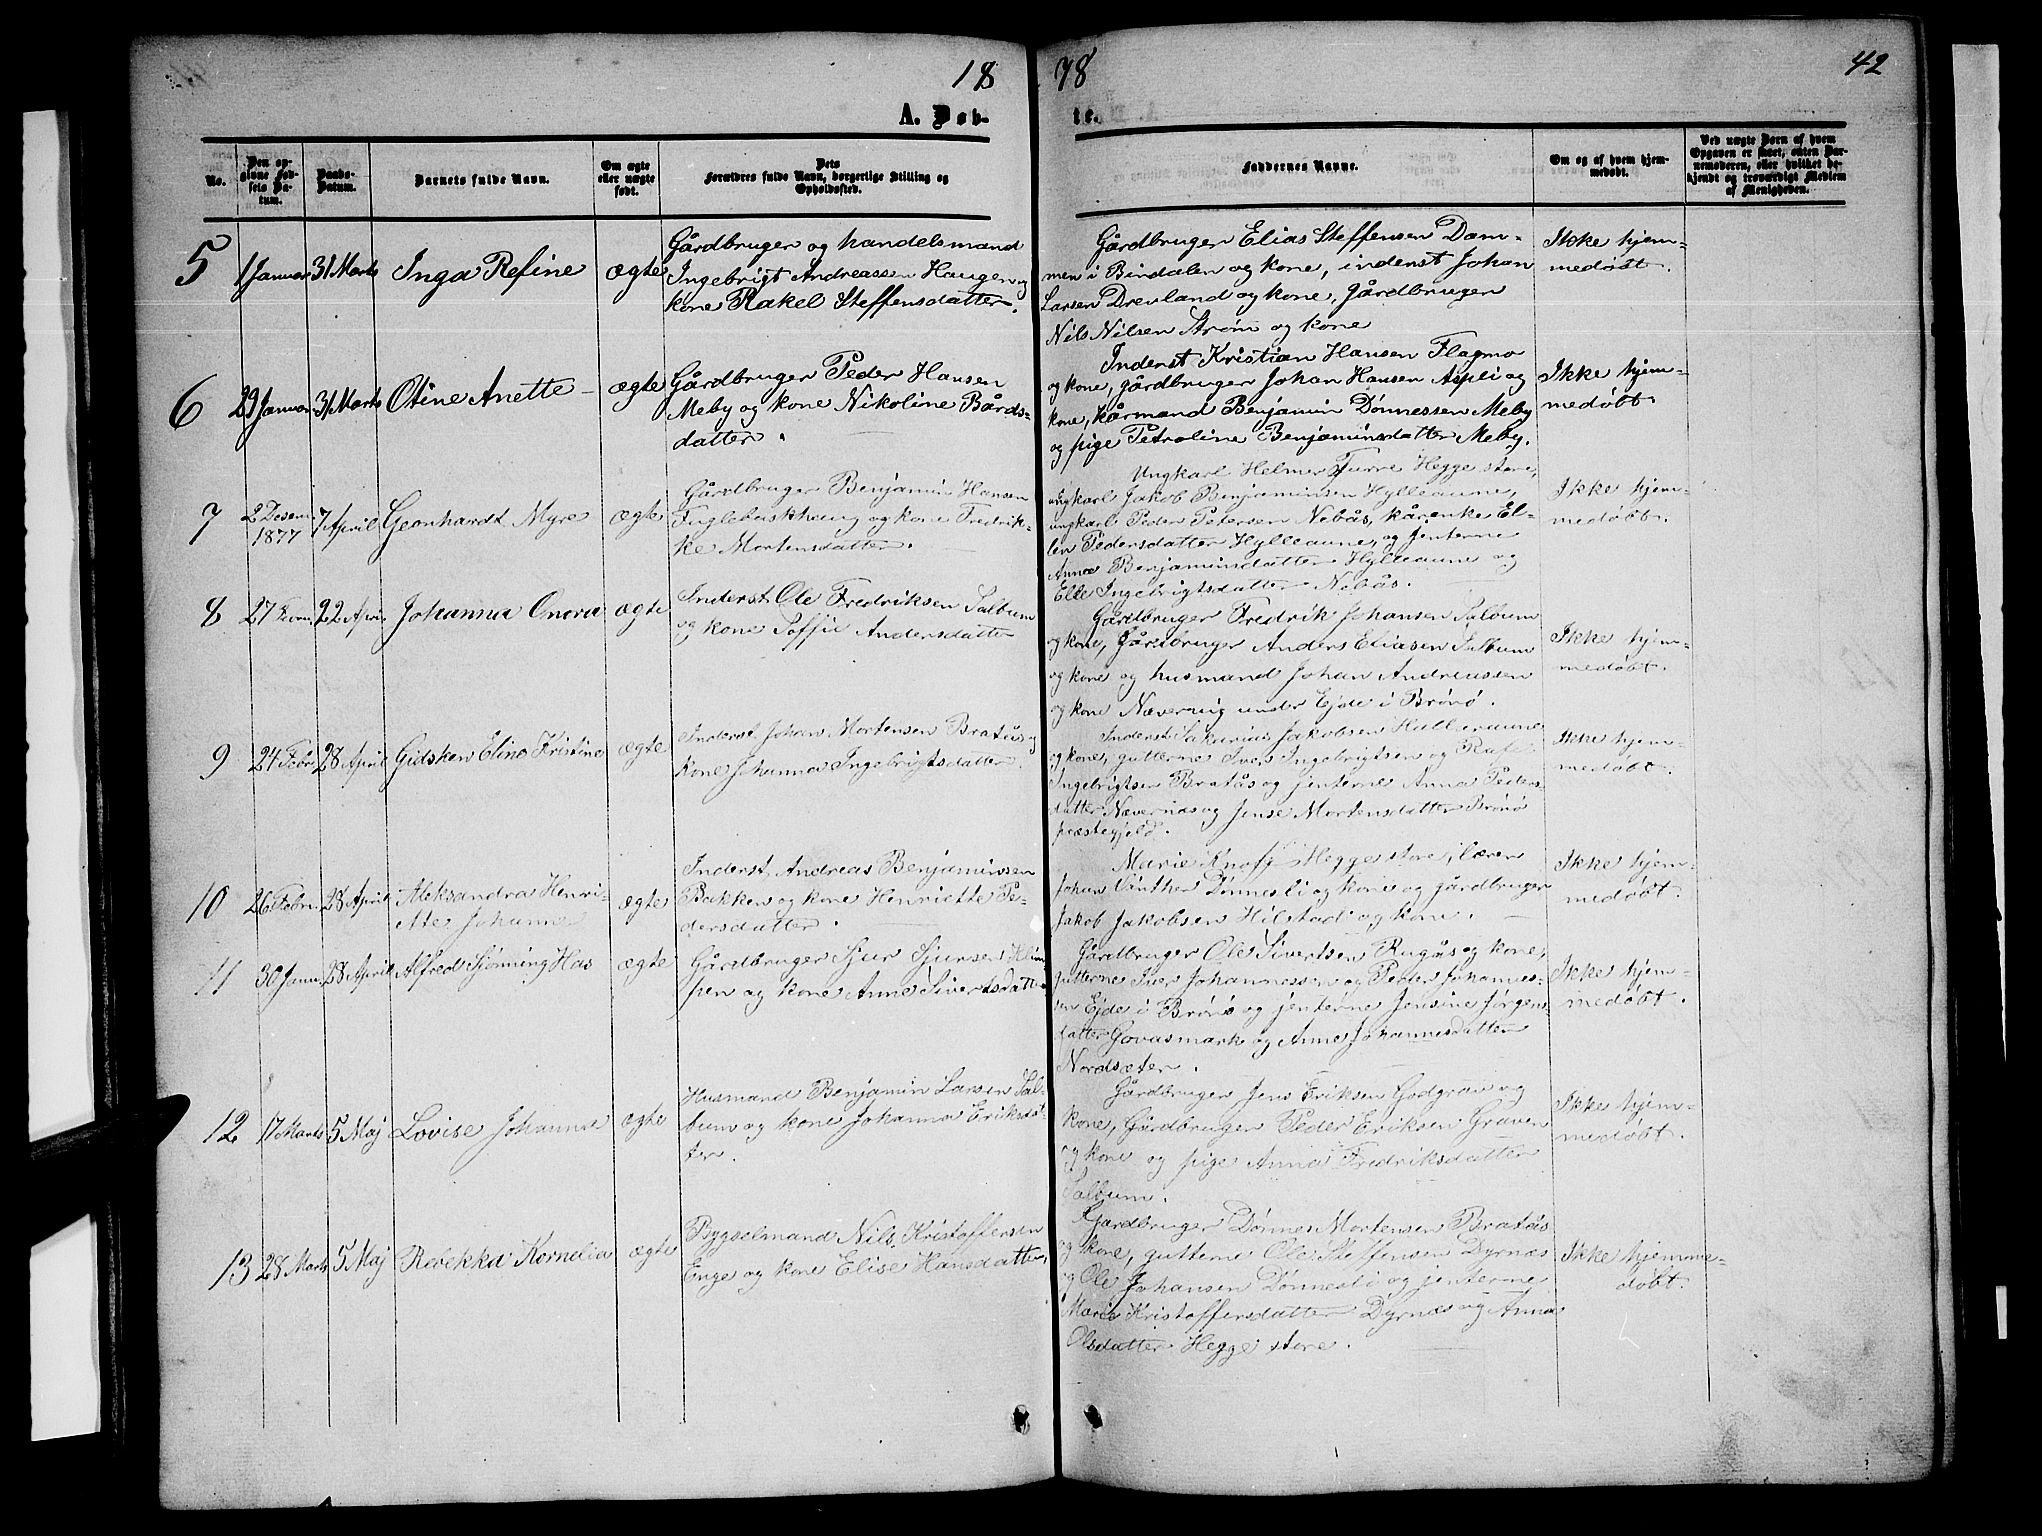 18 78
42
A. Døb- te.
No.
Den op-
givne Fød-
sels Da-
tum.
Daabs-
Datum.
Barnets fulde Navn.
Om ægte
eller uægte
født.
Dets
Forældres fulde Navn, borgerlige Stilling og
Opholdssted.
Faddernes Navne.
Om og af hvem hjem-
medøbt.
Ved uægte Børn af hvem
Opgaven er skeet, enten Bar-
nemoderen, eller hvilket be-
kjendt og troværdigt Medlem
af Menigheden.
5 1 Januar 31 Marts Inga Refine ægte
Gårdbruger og handelsmand
Ingebrigt Andreassen Haugen og
kone Rakel Steffensdatter.
Gårdbruger Elias Steffensen Dam-
men i Bindalen og kone, inderst Johan
Larsen Drevland og kone, Gårdbruger
Nils Nilsen Strøm og kone
Ikke hjem-
medøbt.
6 29 Januar 31 Marts Otine Anette ægte
Gårdbruger Peder Hansen
Meby og kone Nikoline Bårds-
datter.
Inderst Kristian Hansen Flagmo
og kone, gårdbruger Johan Hansen Aspli og
kone, kårmand Benjamin Dønnessen Meby
og pige Petroline Benjaminsdatter Meby.
Ikke hjem-
medøbt.
7 2 Desem 1877 7 April Geonhardt Myre ægte
Gårdbruger Benjamin Hansen
Fuglebaskhaug og kone Fredrik-
ke Mortensdatter.
Ungkarl Helmer Furre Hegge store,
ungkarl Jakob Benjaminsen Hylleaune,
ungkarl Peder Petersen Nebås, kårenke El-
len Pedersdatter Hylleaune, og jenterne
Anna Benjaminsdatter Hylleaune og
Elle Ingebrigtsdatter Nebås.
Ikke hjem-
medøbt.
8 27 22 April Johanna Onora ægte
Inderst Ole Fredriksen Salbum
og kone Soffie Andersdatter
Gårdbruger Fredrik Johansen Salbum
og kone, Gårdbruger Anders Eliasen Salbum
og kone og husmand Johan Andreassen
og kone Næverneig under Ejde i Brønø.
Ikke hjem-
medøbt.
9 24 Febr 28 April Gidsken Elino Kristine ægte
Inderst Johan Mortensen Bratås og
kone Johanna Ingebrigtsdatter
Inderst Sakarias Jakobsen Hulleraune
og kone, gutterne Iver Ingebrigtsen og Rafe
Ingebrigtsen Bratås og jenterne Anna Peders-
datter Nævernæs og Jense Mortensdatter Brønø
præstegjeld.
Ikke hjem-
medøbt.
10 26 Febru 28 April Aleksandra Henri-
ette Johanne ægte
Inderst Andreas Benjaminsen
Bakken og kone Henriette Pe-
dersdatter.
Marie Knoff Hegge store, lærer
Johan Vinther Dønnesli og kone og gårdbruger
Jakob Jakobsen Hilstad og kone.
Ikke hjem-
medøbt.
11 30 Janu 28 April Alfred Sjønning Has ægte
Gårdbruger Sjur Sjursen Klim-
pen og kone Anne Sivertsdatter
Gårdbruger Ole Sivertsen Rugås og kone,
gutterne Iver Johannessen og Peder Johannes-
sen Ejde i Brønø og jenterne Jensine Jørgens-
datter Govasmark og Anne Johannesdatter
Nordsæter.
Ikke hjem-
medøbt.
12 17 Marts 5 Maj Lovise Johanna ægte
Husmand Benjamin Larsen Sal-
bum og kone Johanna Eriksdat-
ter.
Gårdbruger Jens Eriksen Godgrav og
kone, Gårdbruger Peder Eriksen Graven
og kone og pige Anna Fredriksdatter
Salbum.
Ikke hjem-
medøbt.
13 28 Marts 5 Maj Rebekka Kornelia ægte
Bygselmand Nils Kristoffersen
Enge og kone Elise Hansdatter,
Gårdbruger Dønnes Mortensen Bratås
og kone, gutterne Ole Steffensen Dyrnæs
og Ole Johansen Dønnesli og jenterne
Marie Kristoffersdatter Dyrnæs og Anna
Olsdatter Hegge store.
Ikke hjemme-
døbt.